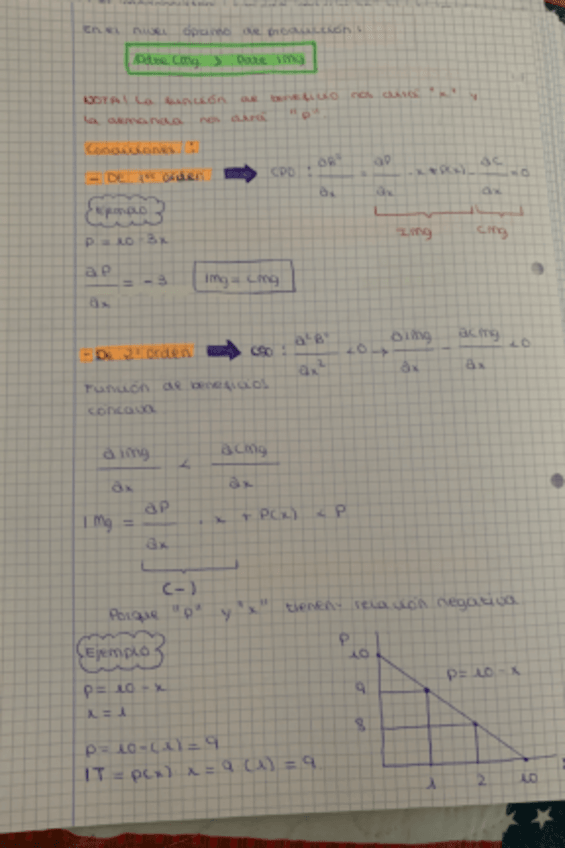 En el nivel óptimo de producción:
NOTA! La función de beneficio nos dirá "x" y
la demanda nos dirá "p".
Condiciones:
- De 1er orden → CPO: ∂B°/∂x = ∂P/∂x · x + P(x) - ∂C/∂x = 0
Img Cmg
Ejemplo
P = 10 - 3x
∂P/∂x = -3 Img = Cmg
- De 2º orden → CSO: ∂²B°/∂x² < 0 → ∂Img/∂x - ∂Cmg/∂x < 0
Función de beneficios
cóncava
∂Img/∂x < ∂Cmg/∂x
IMg = ∂P/∂x · x + P(x) < P
(-)
Porque "p" y "x" tienen relación negativa
Ejemplo
P = 10 - x
x = 1
P = 10 - (1) = 9
IT = P(x) x = 9 (1) = 9
P
10
9
8
P = 10 - x
1 2 10